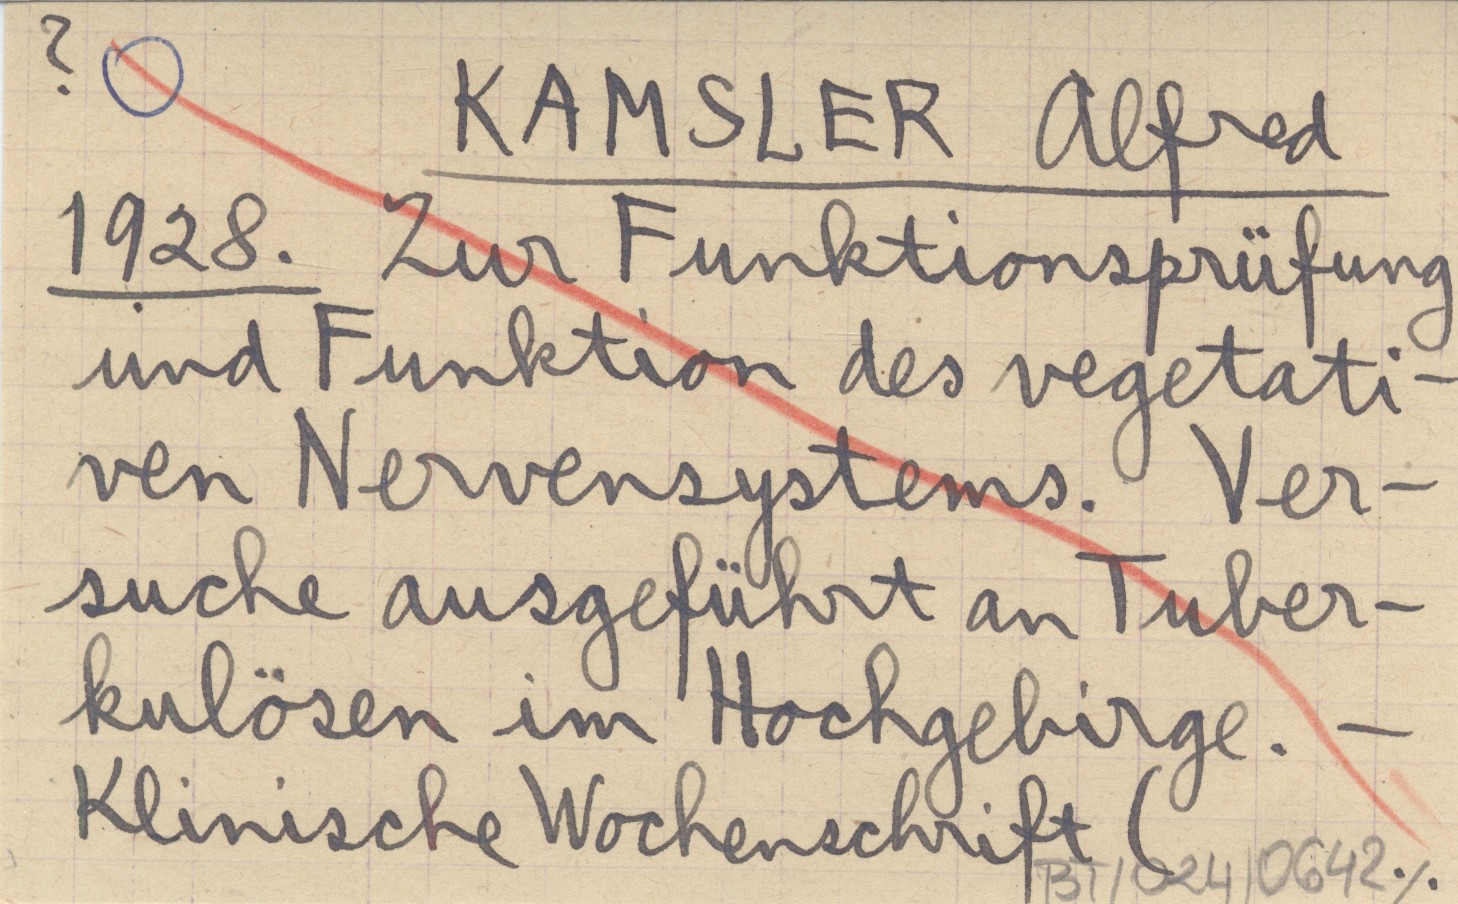 ?
KAMSLER Alfred
1928. Zur Funktionsprüfung
und Funktion des vegetati-
ven Nervensystems. Ver-
suche ausgeführt an Tuber-
kulösen im Hochgebirge. -
Klinische Wochenschrift (
BT/024/0642./.